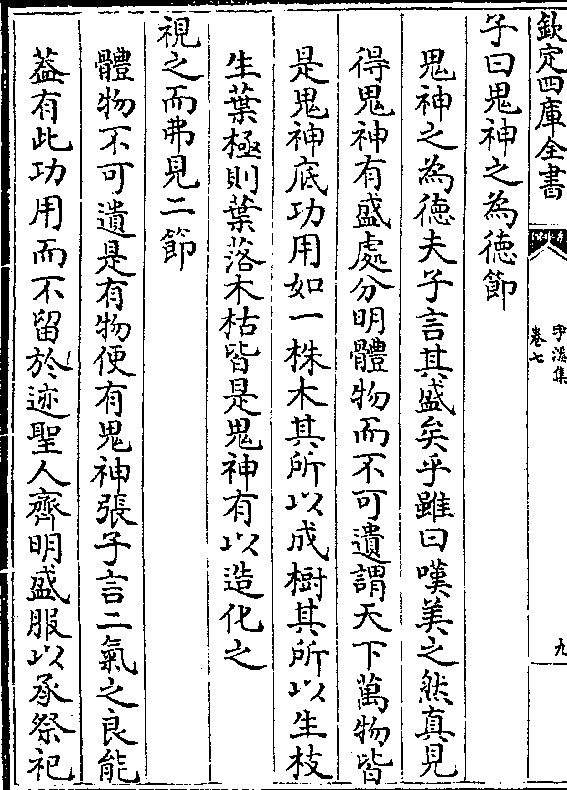 欽定四庫全書
卷七
九
子曰鬼神之為德節
鬼神之為德夫子言其盛矣乎雖曰嘆美之然真見
得鬼神有盛處分明體物而不可遺謂天下萬物皆
是鬼神底功用如一株木其所以成樹其所以生枝
生葉極則葉落木枯皆是鬼神有以造化之
視之而弗見二節
體物不可遺是有物便有鬼神張子言二氣之良能
葢有此功用而不留於迹聖人齊明盛服以承祭祀